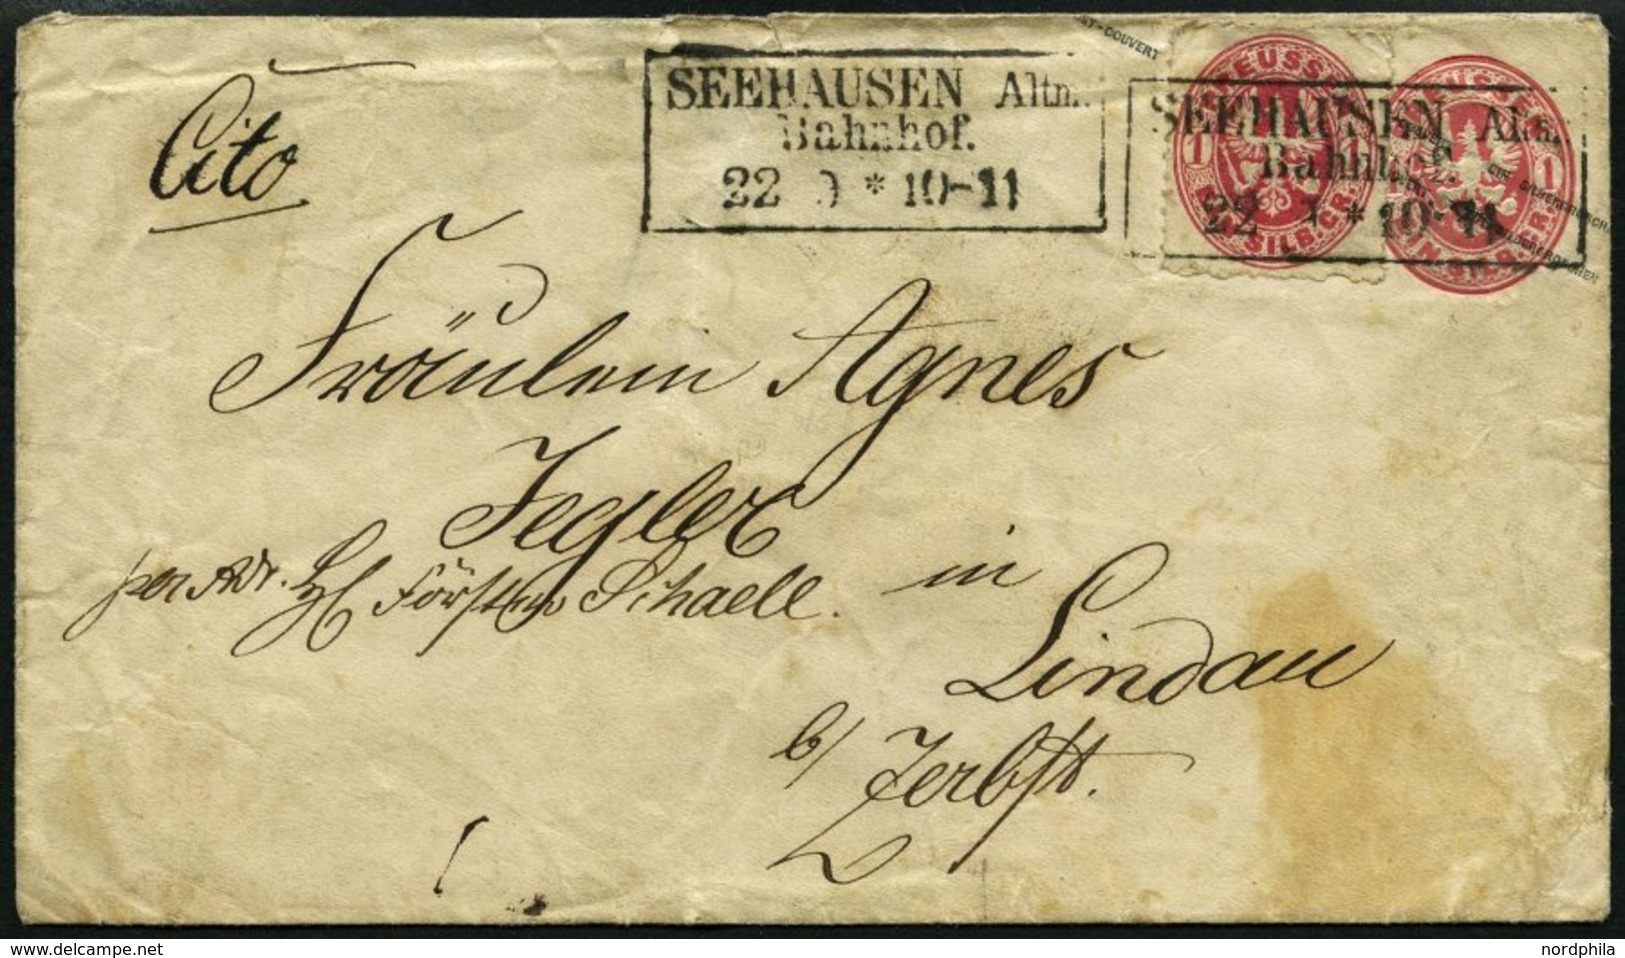 Cito
SEEHAUSEN Altm.
Bahnhof.
22 9 * 10-11
SEEHAUSEN Altm.
Bahnhof.
22 * 10-11
POST-COUVERT
PREUSSEN
1 1
EIN SILB.GR.
PREUSSEN
1 1
EIN SILB.GR.
Fräulein Agnes
Jegler
per Adr. H Förster Schaele. in
Lindau
b/ Zerbst.
www.delcampe.net
nordphila